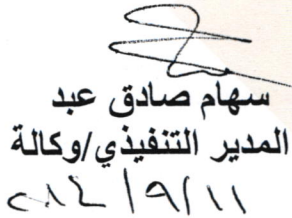 سهام صادق عبد
المدير التنفيذي/وكالة
٢٠١٤/٩/١١